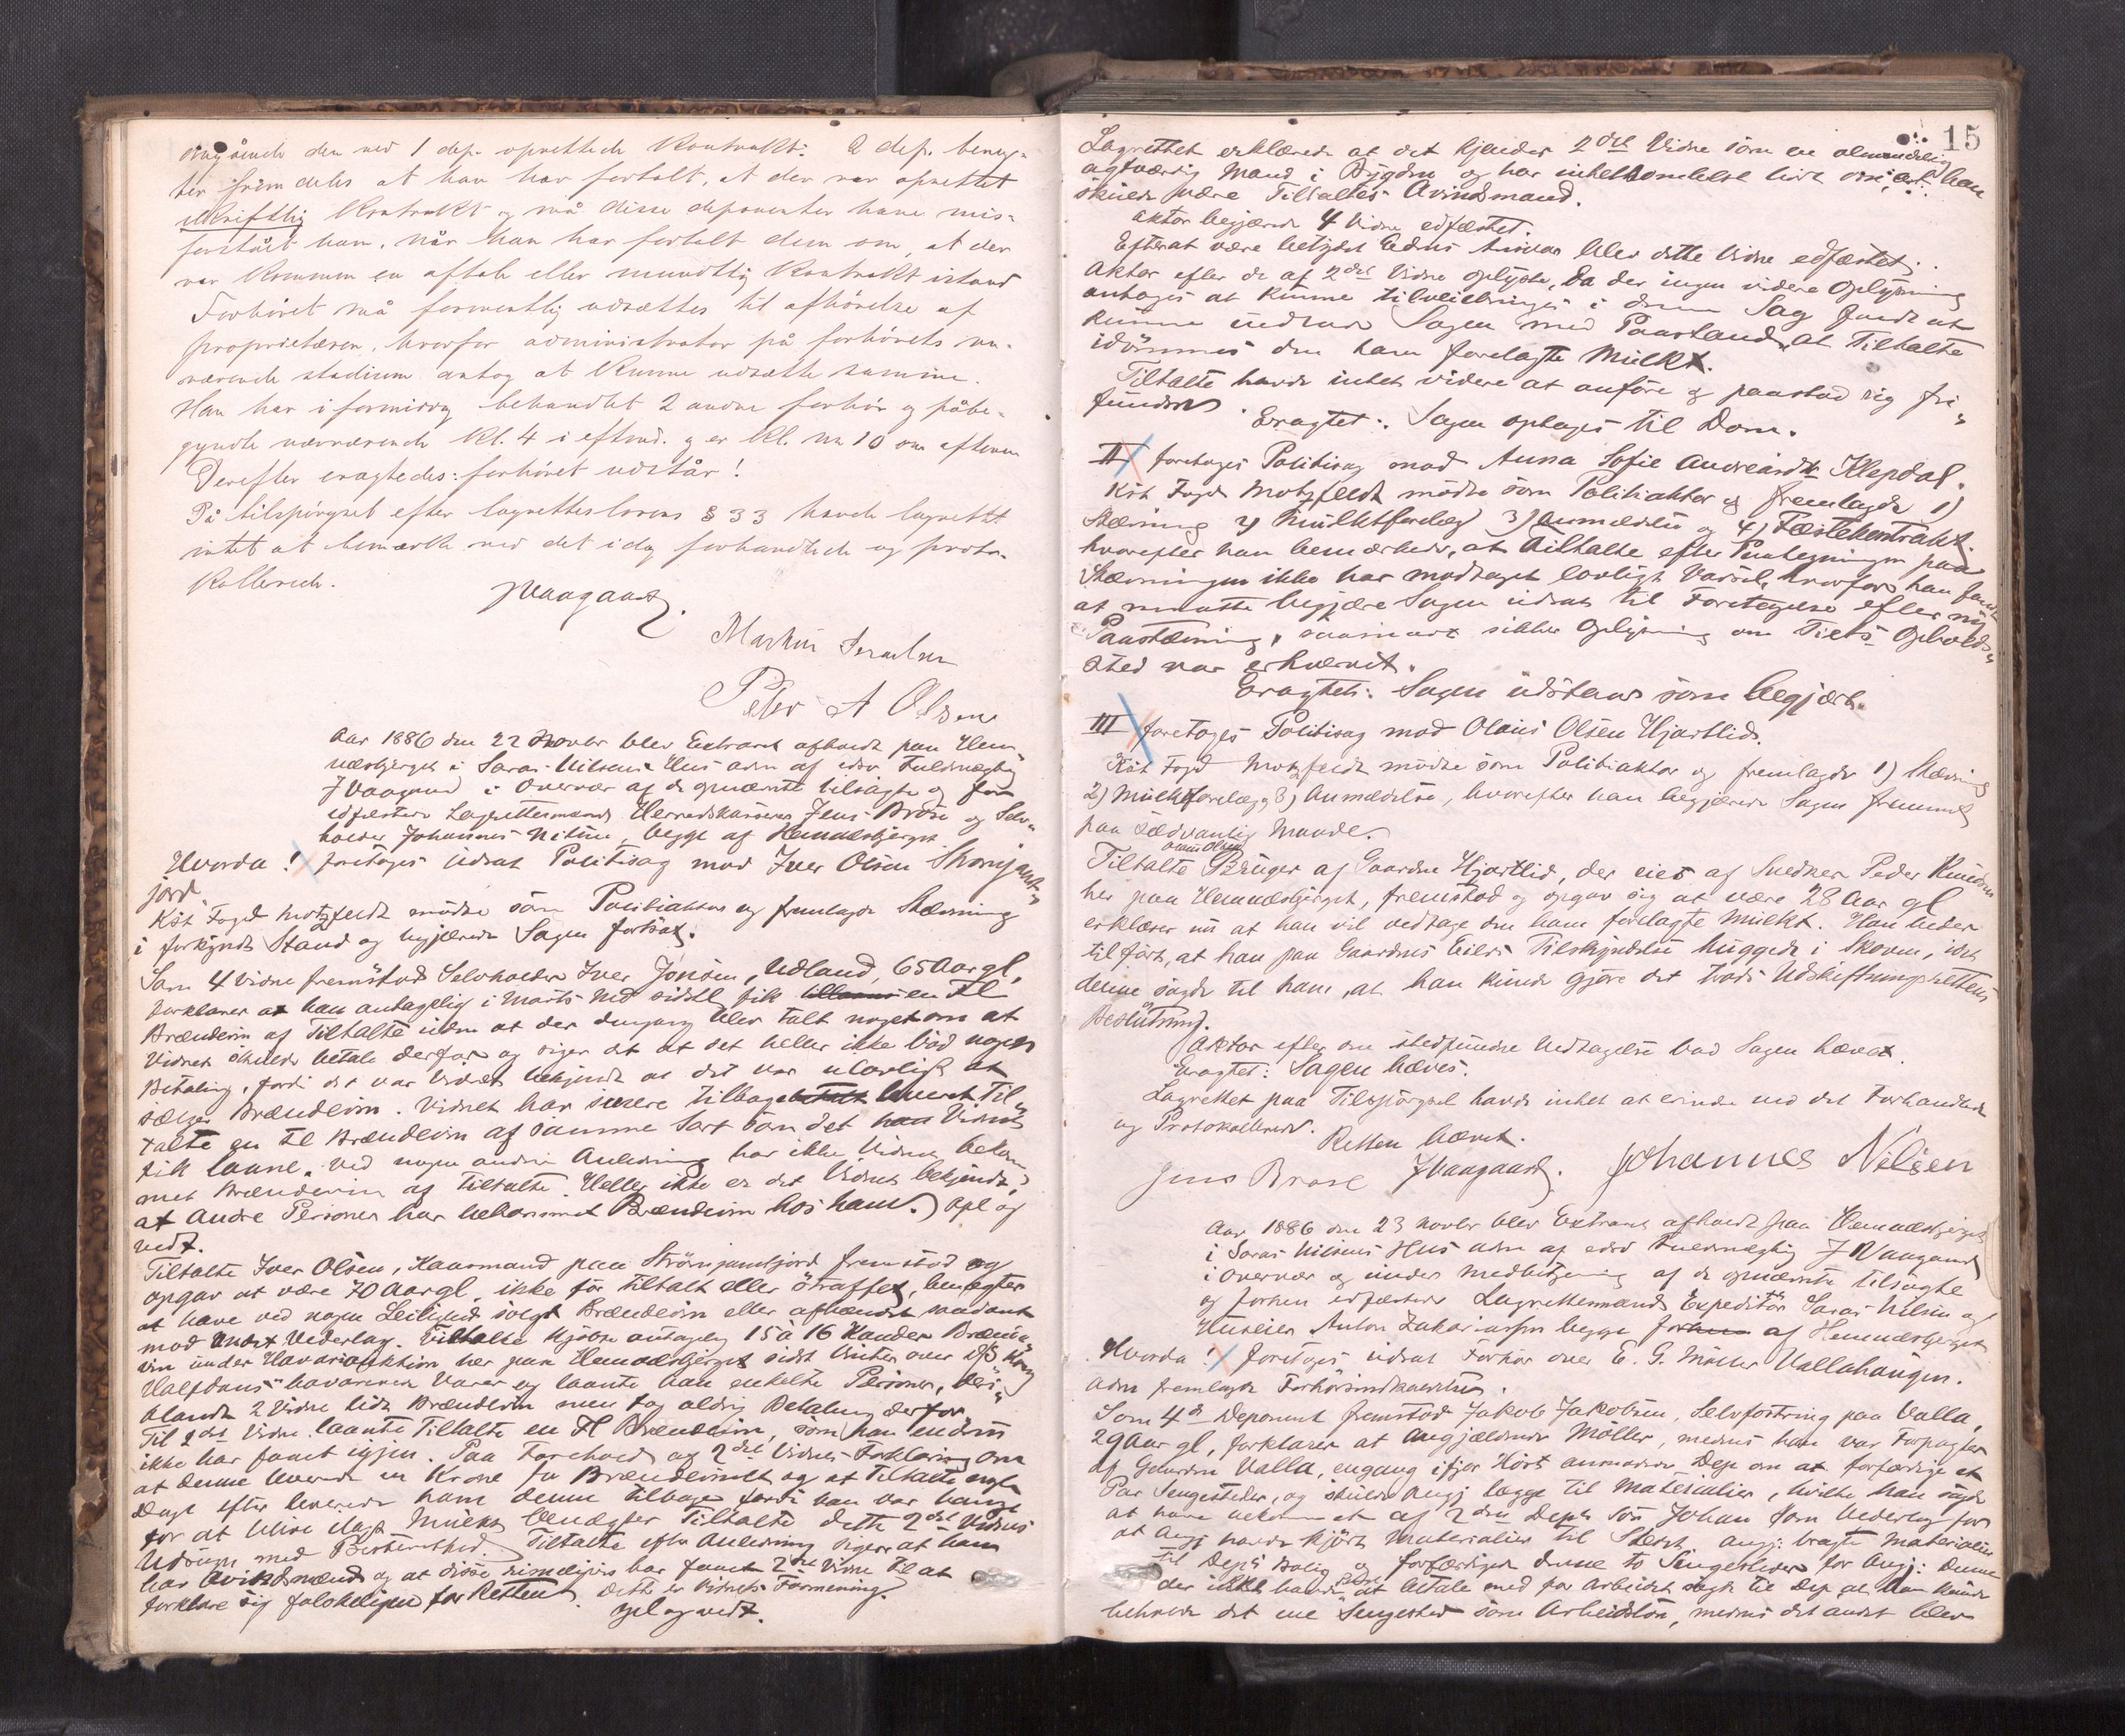 angående den ved 1 dep. oprettede Kontrakt. 2 dep. benæg-
ter fremdeles at han har fortalt, at der var oprettet
skriftlig Kontrakt og må disse deponenter have mis-
forstået ham, når han har fortalt dem om, at der
var kommen en aftale eller mundtlig Kontrakt istand
Forhöret må formentlig udsættes til afhörelse af
proprietæren, hvorfor administrator på forhörets nu-
værende stadium antog at kunne udsætte samme.
Han har i formiddag behandlet 2 andre forhör og påbe-
gyndte nærværende kl. 4 i efterm. og er kl. nu 10 om aftenen
Derefter eragtedes: forhöret udstår!
På tilspörgsel efter lagretteslovens § 33 havde lagrettet
intet at bemærke ved det idag forhandlede og proto-
kollerede.
JVaagaard.
Martin
Peter A Olsen
Aar 1886 den 22 Novbr blev Extraret afholdt paa Hem-
næsbjerget i Saras Nilsens Hus adm af edsv Fuldmægtig
J Vaagaard i Overvær af de opnævnte tilsagte og før
edfæstede Lagrettesmænd Herredskasserer Jens Brose og Selv-
holder Johannes Nilsen, begge af Hemnæsbjerget
Hvorda! foretoges udsat Politisag mod Iver Olsen Strömjamt-
jord.
Kst Foged Motzfeldt mødte som Politiaktor og fremlagde Stævning
i forkyndt Stand og begjærede Sagen fortsat.
Som 4 Vidne fremstod Selvholder Iver Jonsen, Udland, 65 Aar gl,
forklarer at han antagelig i Marts Md sidstl fik tillaans en Fl
Brændevin af Tiltalte uden at der dengang blev talt noget om at
Vidnet skulde betale derfor og siger at det heller ikke bød nogen
Betaling, fordi det var Vidnet bekjendt at det var ulovligt at
sælge Brændevin. Vidnet har senere tilbage leveret Til-
talte en Fl Brændevin af samme Sort som det han Vidnet
fik laant. Ved nogen anden Anledning har ikke Vidnet bekom-
met Brændevin af Tiltalte. Heller ikke er det Vidnet bekjendt,
at andre Personer har bekommet Brændevin hos ham. Opl og
vedt.
Tiltalte Iver Olsen, Kaarmand paa Strömjamtjord fremstod og
opgav at være 70 Aar gl, ikke før tiltalt eller straffet, benægter
at have ved nogen Leilighed solgt Brændevin eller afhændet saadant
mod andet Vederlag. Tiltalte kjöbte antagelig 15 à 16 Kander Brænde-
vin under Havariauktion her paa Hemnæsbjerget sidst Vinter over D/S Kong
Halfdans havarerede Varer og laante han enkelte Personer, deri-
blandt 2 Vidne lidt Brændevin men tog aldrig Betaling derfor
Til 2det Vidne laante Tiltalte en Fl Brændevin, som han endnu
ikke har faaet igjen. Paa Forehold af 2det Vidnes Forklaring om
at denne leverede en Krone for Brændevinet og at Tiltalte nogle
Dage efter leverede ham denne tilbage fordi han var bange
for at blive ilagt Mulkt benægter Tiltalte dette 2det Vidnes
Udsagn med Bestemthed. Tiltalte efter Anledning siger at ham
har Avindsmænd og at disse rimeligvis har faaet 2det Vidne til at
forklare sig falskeligen for Retten. Dette er Vidnets Formening.
Opl og vedt.
15
Lagrettet erklærede at det kjender 2det Vidne som en almindelig
agtværdig Mand i Bygden og har intetsomhelst hørt om, at han
skulde være Tiltaltes Avindsmand.
Aktor begjærede 4 Vidne edfæstet.
Efterat være betydet Edens Ansvar blev dette Vidne edfæstet.
Aktor efter de af 2det Vidne oplyste, da der ingen videre Oplysning
antages at kunne tilveiebringes i denne Sag fandt at
kunne indlade Sagen med Paastand, at Tiltalte
idømmes den ham forelagte Mulkt.
Tiltalte havde intet videre at anføre og paastod sig fri-
funden.
Eragtet: Sagen optages til Dom.
II foretoges Politisag mod Anna Sofie Andreasdtr Klepdal.
Kst Foged Motzfeldt mödte som Politiaktor og fremlagde 1)
Stævning 2) Mulktforelæg 3) Anmeldelse og 4) Fæstekontrakt.
hvorefter han bemærkede, at Tiltalte efter Paategningen paa
Stævningen ikke har modtaget lovligt Varsel, hvorfor han fandt
at maatte begjære Sagen udsat til Foretagelse efter ny
Paastævning, saasnart sikker Oplysning om Tiltes Opholds-
sted var erhvervet.
Eragtet: Sagen udstaar som begjært.
III foretoges Politisag mod Olaus Olsen Hjartlid.
Kst Foged Motzfeldt mödte som Politiaktor og fremlagde 1) Stævning
2) Mulktforelæg 3) Anmeldelse, hvorefter han begjærede Sagen fremmet
paa sædvanlig Maade.
Olaus Olsen
Tiltalte Bruger af Gaarden Hjartlid, der eies af Snedker Peder Knudsen
her paa Hemnæsbjerget, fremstod og opgav sig at være 28 Aar gl
erklærer nu at han vil vedtage den ham forelagte Mulkt. Han beder
tilført, at han paa Gaardens Eiers Tilskyndelse huggede i Skoven, idet
denne sagde til ham, at han kunde gjøre det trods Udskiftningsrettens
Beslutning.
Aktor efter den stedfundne Vedtagelse bad Sagen hævet.
Eragtet: Sagen hæves.
Lagrettet paa Tilspørgsel havde intet at erindre ved det Forhandlede
og Protokollerede.
Retten hævet.
Jens Brose JVaagaard. Johannes Nilsen
Aar 1886 den 23 Novbr blev Extraret afholdt paa Hemnæsbjerget
i Saras Nilsens Hus adm af edsv Fuldmægtig J Vaagaard
i Overvær og under Medbetjening af de opnævnte tilsagte
og forhen edfæstede Lagrettesmænd Expeditör Saras Nilsen og
Huseier Anton Zakariassen begge forhen af Hemnæsbjerget
Hvorda! foretoges udsat Forhör over E. G. Möller Vallahaugen.
Adm fremlagde Forhörsindkaldelse.
Som 4de Deponent fremstod Jakob Jakobsen, Selvfostring paa Valla,
29 Aar gl, forklarer at Angjældende Möller, medens han var Forpagter
af Gaarden Valla, engang ifjor Höst anmodede Dep om at forfærdige et
Par Sengesteder, og skulde Angj lægge til Materialier, hvilke han sagde
at have bekommet af 2den Deps Sön Johan som Vederlag for
at Angj havde kjört Materialier til Stedet. Angj: bragte Materialier
til Deps Bolig og forfærdigede denne to Sengesteder for Angj: Denne
der ikke havde Penge at betale med for Arbeidet sagde til Dep at han kunde
beholde det ene Sengested som Arbeidslön, medens det andet blev